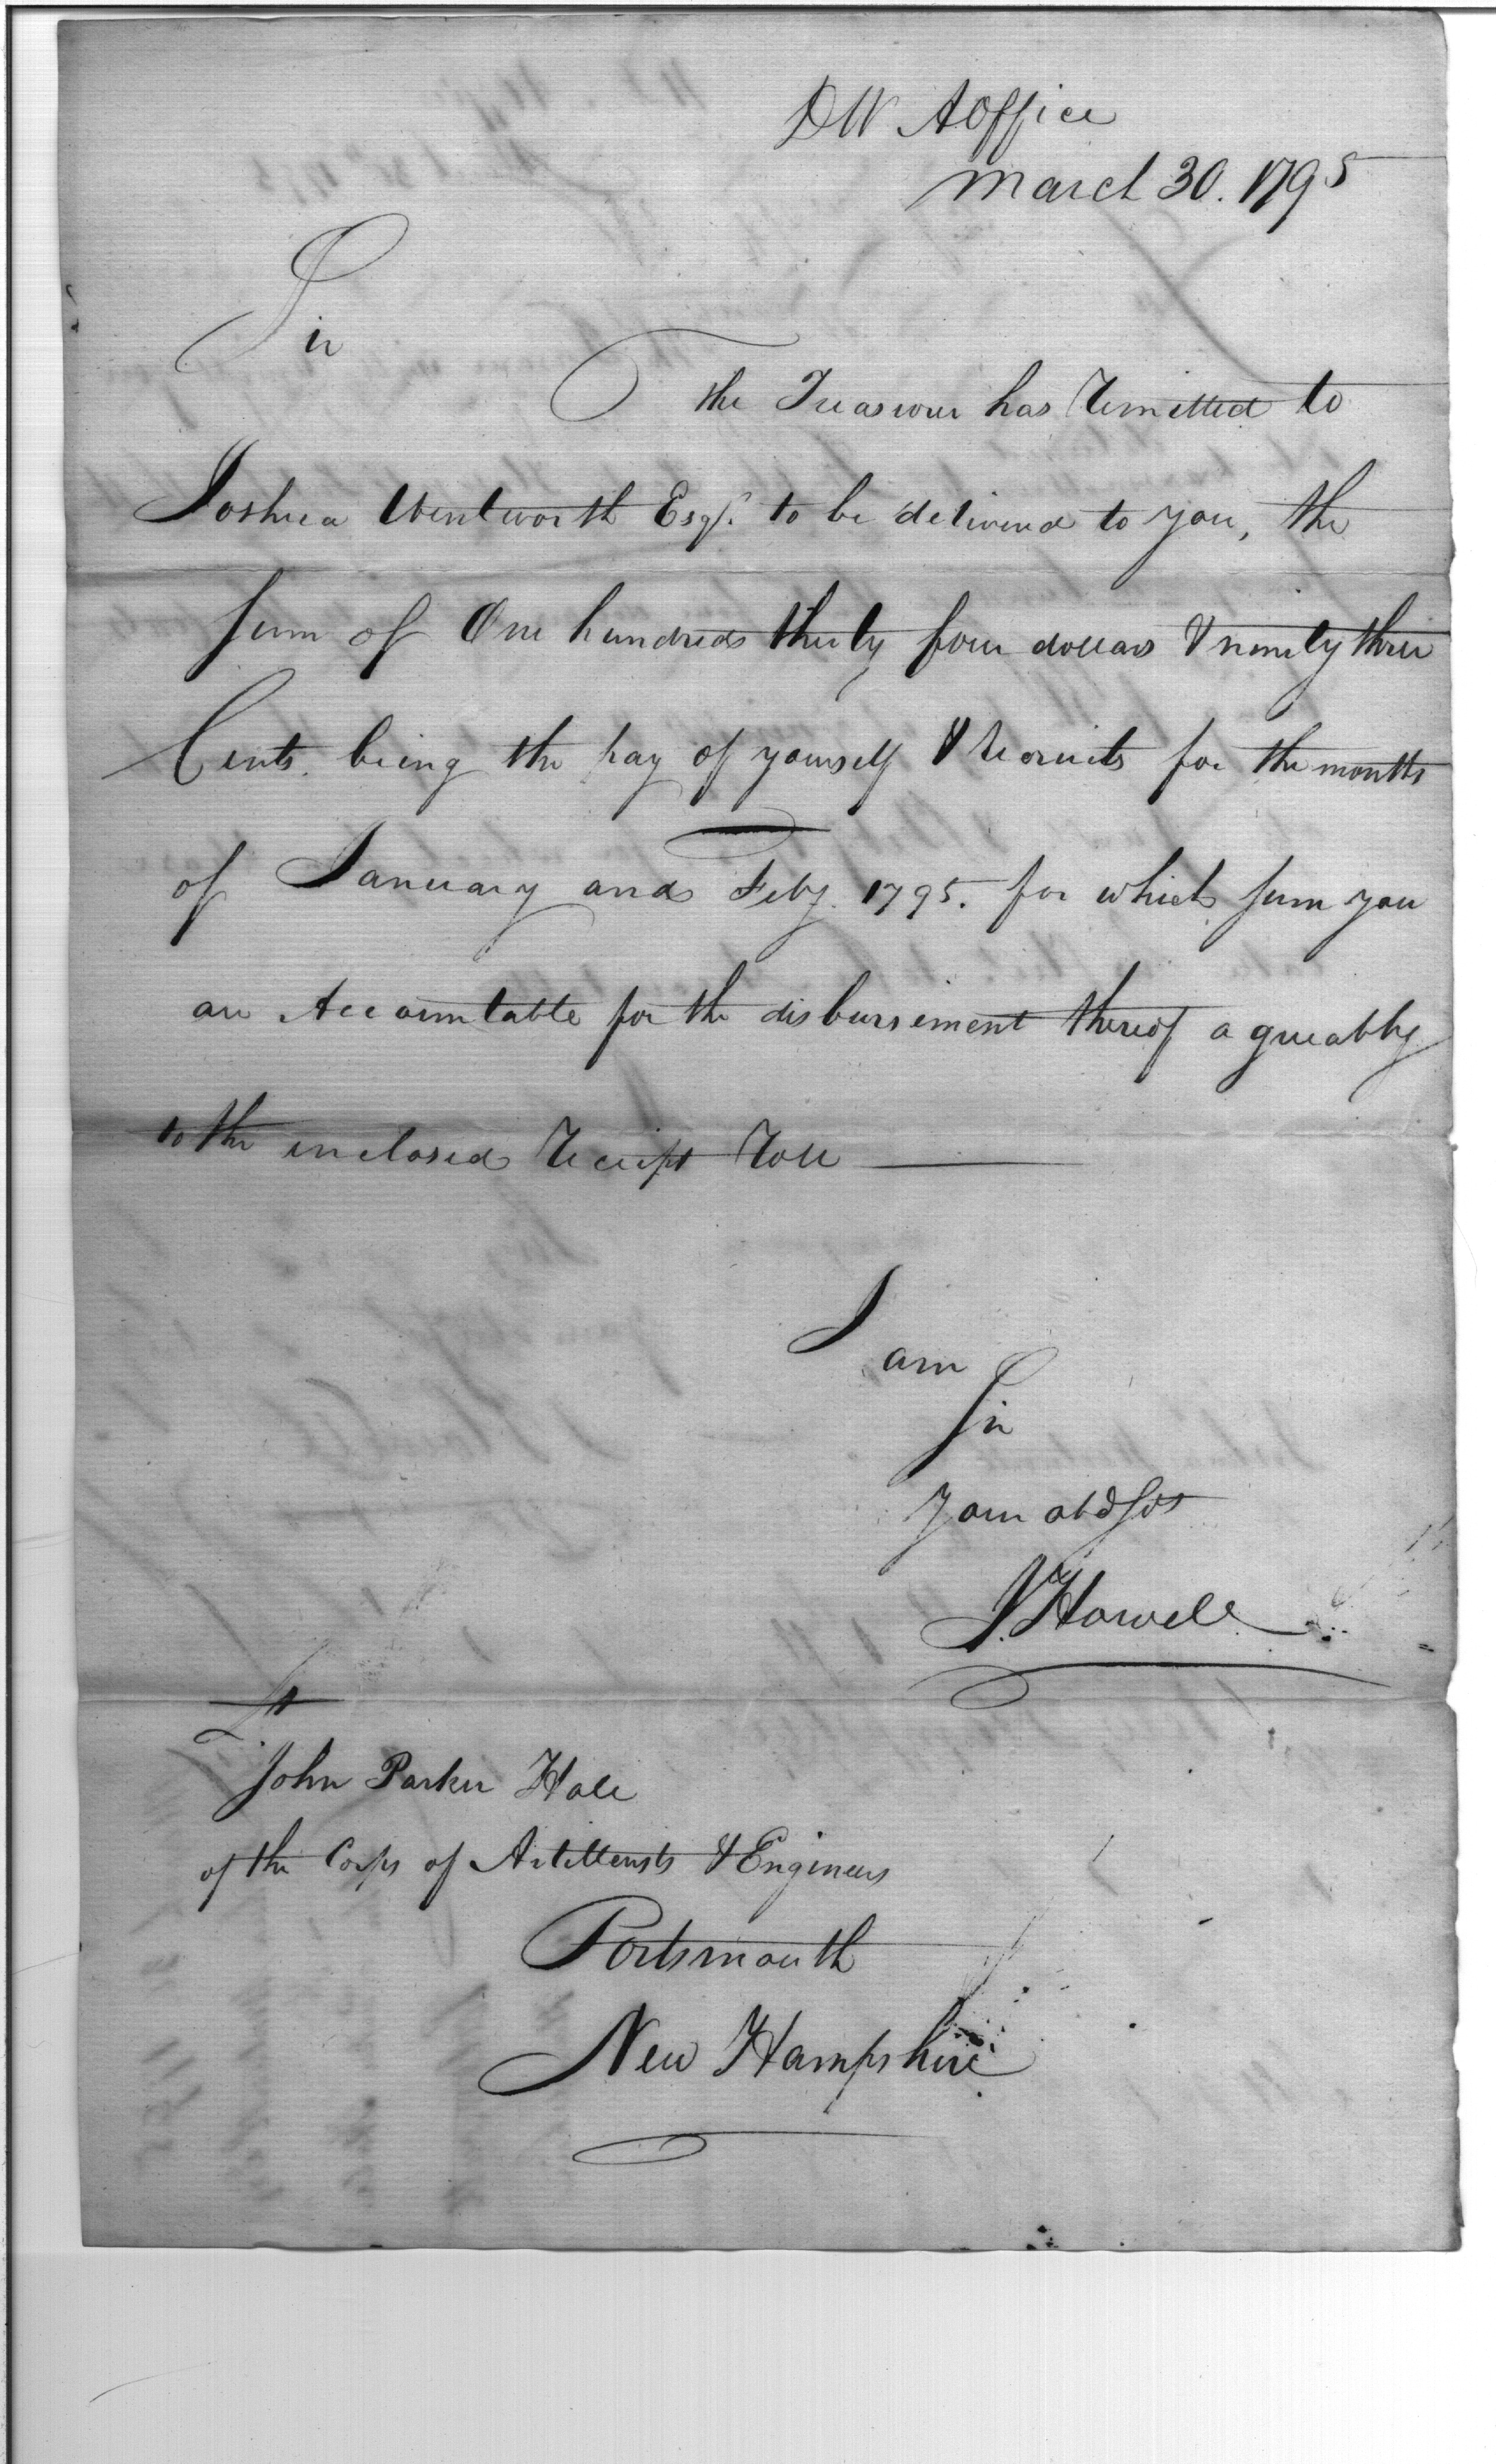 DW AOffice
March 30. 1795
Sir
The Treasurer has Remitted to
Joshua Wentworth Esqr. to be delivered to you, the
Sum of One hundred thirty four dollars & ninety three
Cents. being the pay of yourself & Recruits for the months
of January and Feby. 1795. for which Sum you
are Accountable for the disbursement thereof agreeably
to the enclosed Receipt Roll
I am
Sir
Your obd Svt
J. Howell
Lt
John Parker Hale
of the Corps of Artillerists & Engineers
Portsmouth
New Hampshire